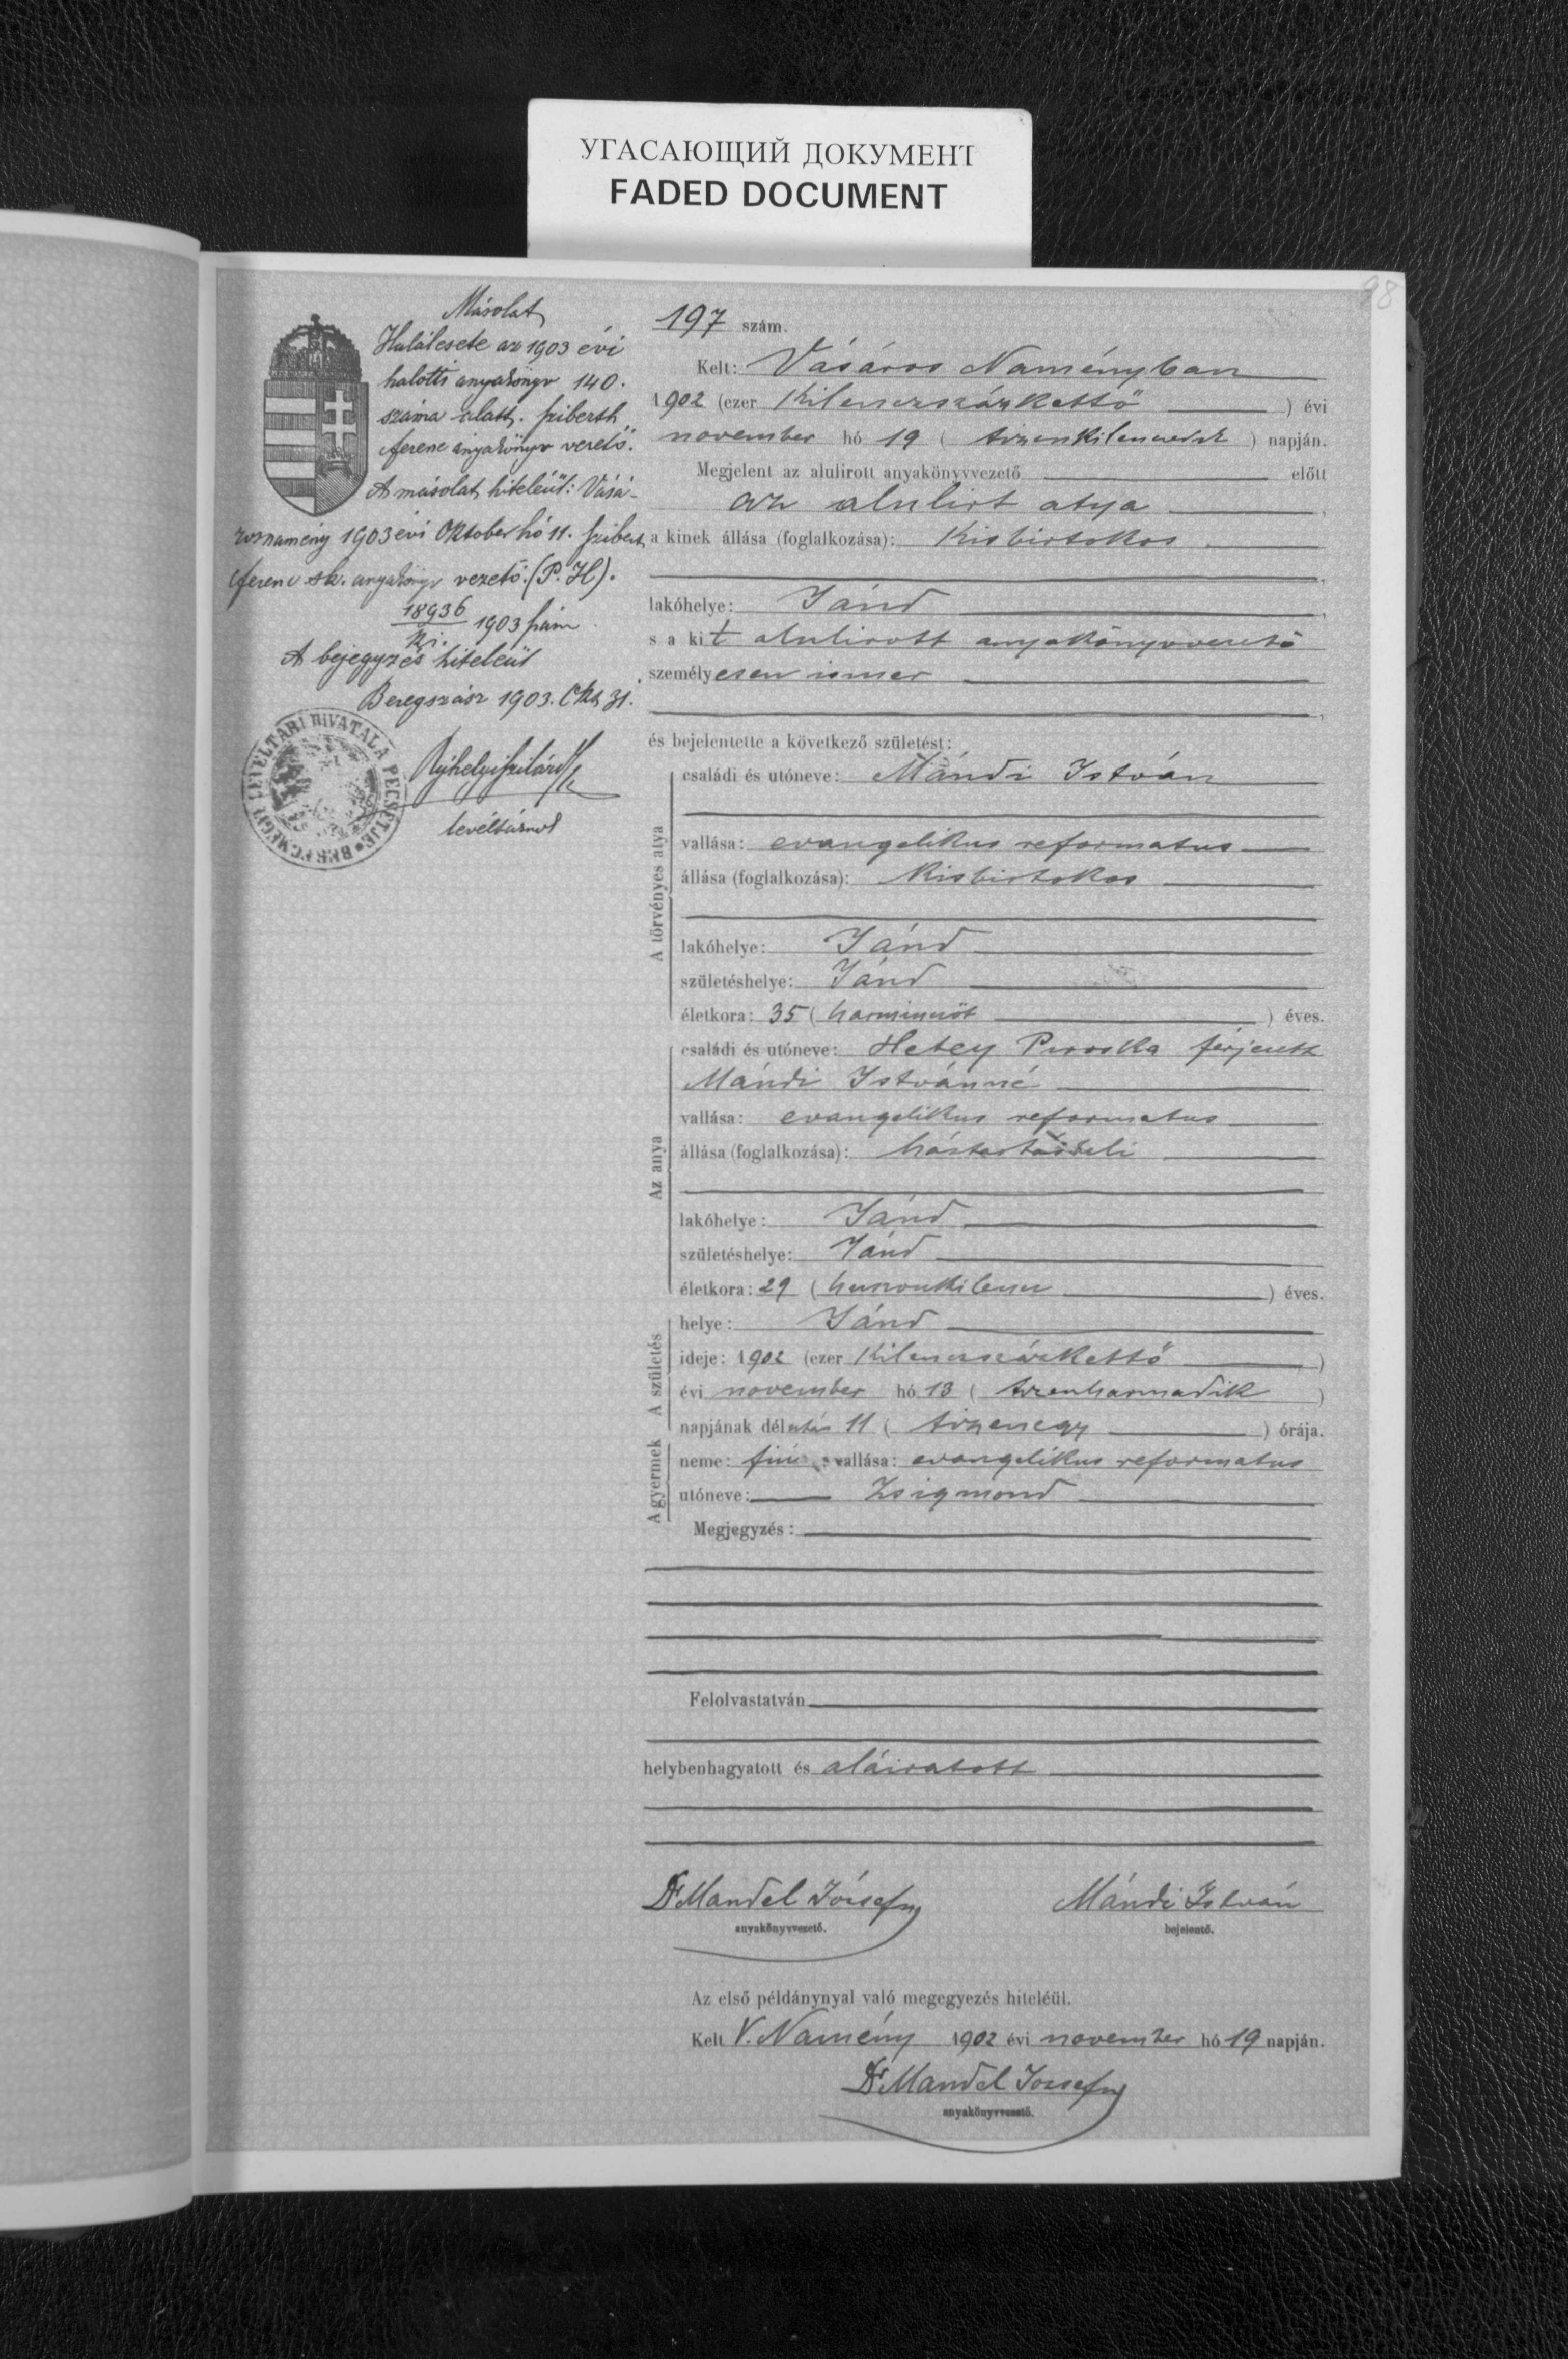 УГАСАЮЩИЙ ДОКУМЕНТ
FADED DOCUMENT
98
Másolat
Halálesete az 1903 évi
halotti anyakönyv 140.
száma alatt. Sziberth
Ferenc anyakönyv vezető.
A másolat hiteléül: Vásá-
rosnamény 1903 évi Oktober hó 11. Szibert
Ferenc sk. anyakönyv vezető. (P. H).
18936
1903 szám
A bejegyzés hiteleül
Beregszász 1903. Okt 31.
levéltárnok
BEREGMEGYE LEVÉLTÁRI HIVATALA PECSÉTJE
197 szám.
Kelt: Vásáros Naményban
1902 (ezer kilenczszázkettő ) évi
november hó 19 ( tizenkilenczedik ) napján.
Megjelent az alulirott anyakönyvvezető előtt
az alulirt atya ,
a kinek állása (foglalkozása): kisbirtokos
lakóhelye: Jánd ,
s a kit alulirott anyakönyvvezető
személyesen ismer
és bejelentette a következő születést:
A törvényes atya
családi és utóneve: Mándi István
vallása: evangelikus reformatus
állása (foglalkozása): kisbirtokos
lakóhelye: Jánd
születéshelye: Jánd
életkora: 35 ( harminczöt ) éves.
Az anya
családi és utóneve: Hetey Piroska férjezett
Mándi Istvánné
vallása: evangelikus reformatus
állása (foglalkozása): háztartásbeli
lakóhelye: Jánd
születéshelye: Jánd
életkora: 29 ( huszonkilencz ) éves.
A születés
helye: Jánd
ideje: 1902 (ezer kilenczszázkettő )
évi november hó 13 ( tizenharmadik )
napjának délután 11 ( tizenegy ) órája.
A gyermek
neme: fiú vallása: evangélikus reformatus
utóneve: Zsigmond
Megjegyzés:
Felolvastatván
helybenhagyatott és aláiratott
Dr Mandel József Mándi István
anyakönyvvezető. bejelentő.
Az első példánynyal való megegyezés hiteléül.
Kelt V. Namény 1902 évi november hó 19 napján.
Dr Mandel József
anyakönyvvezető.